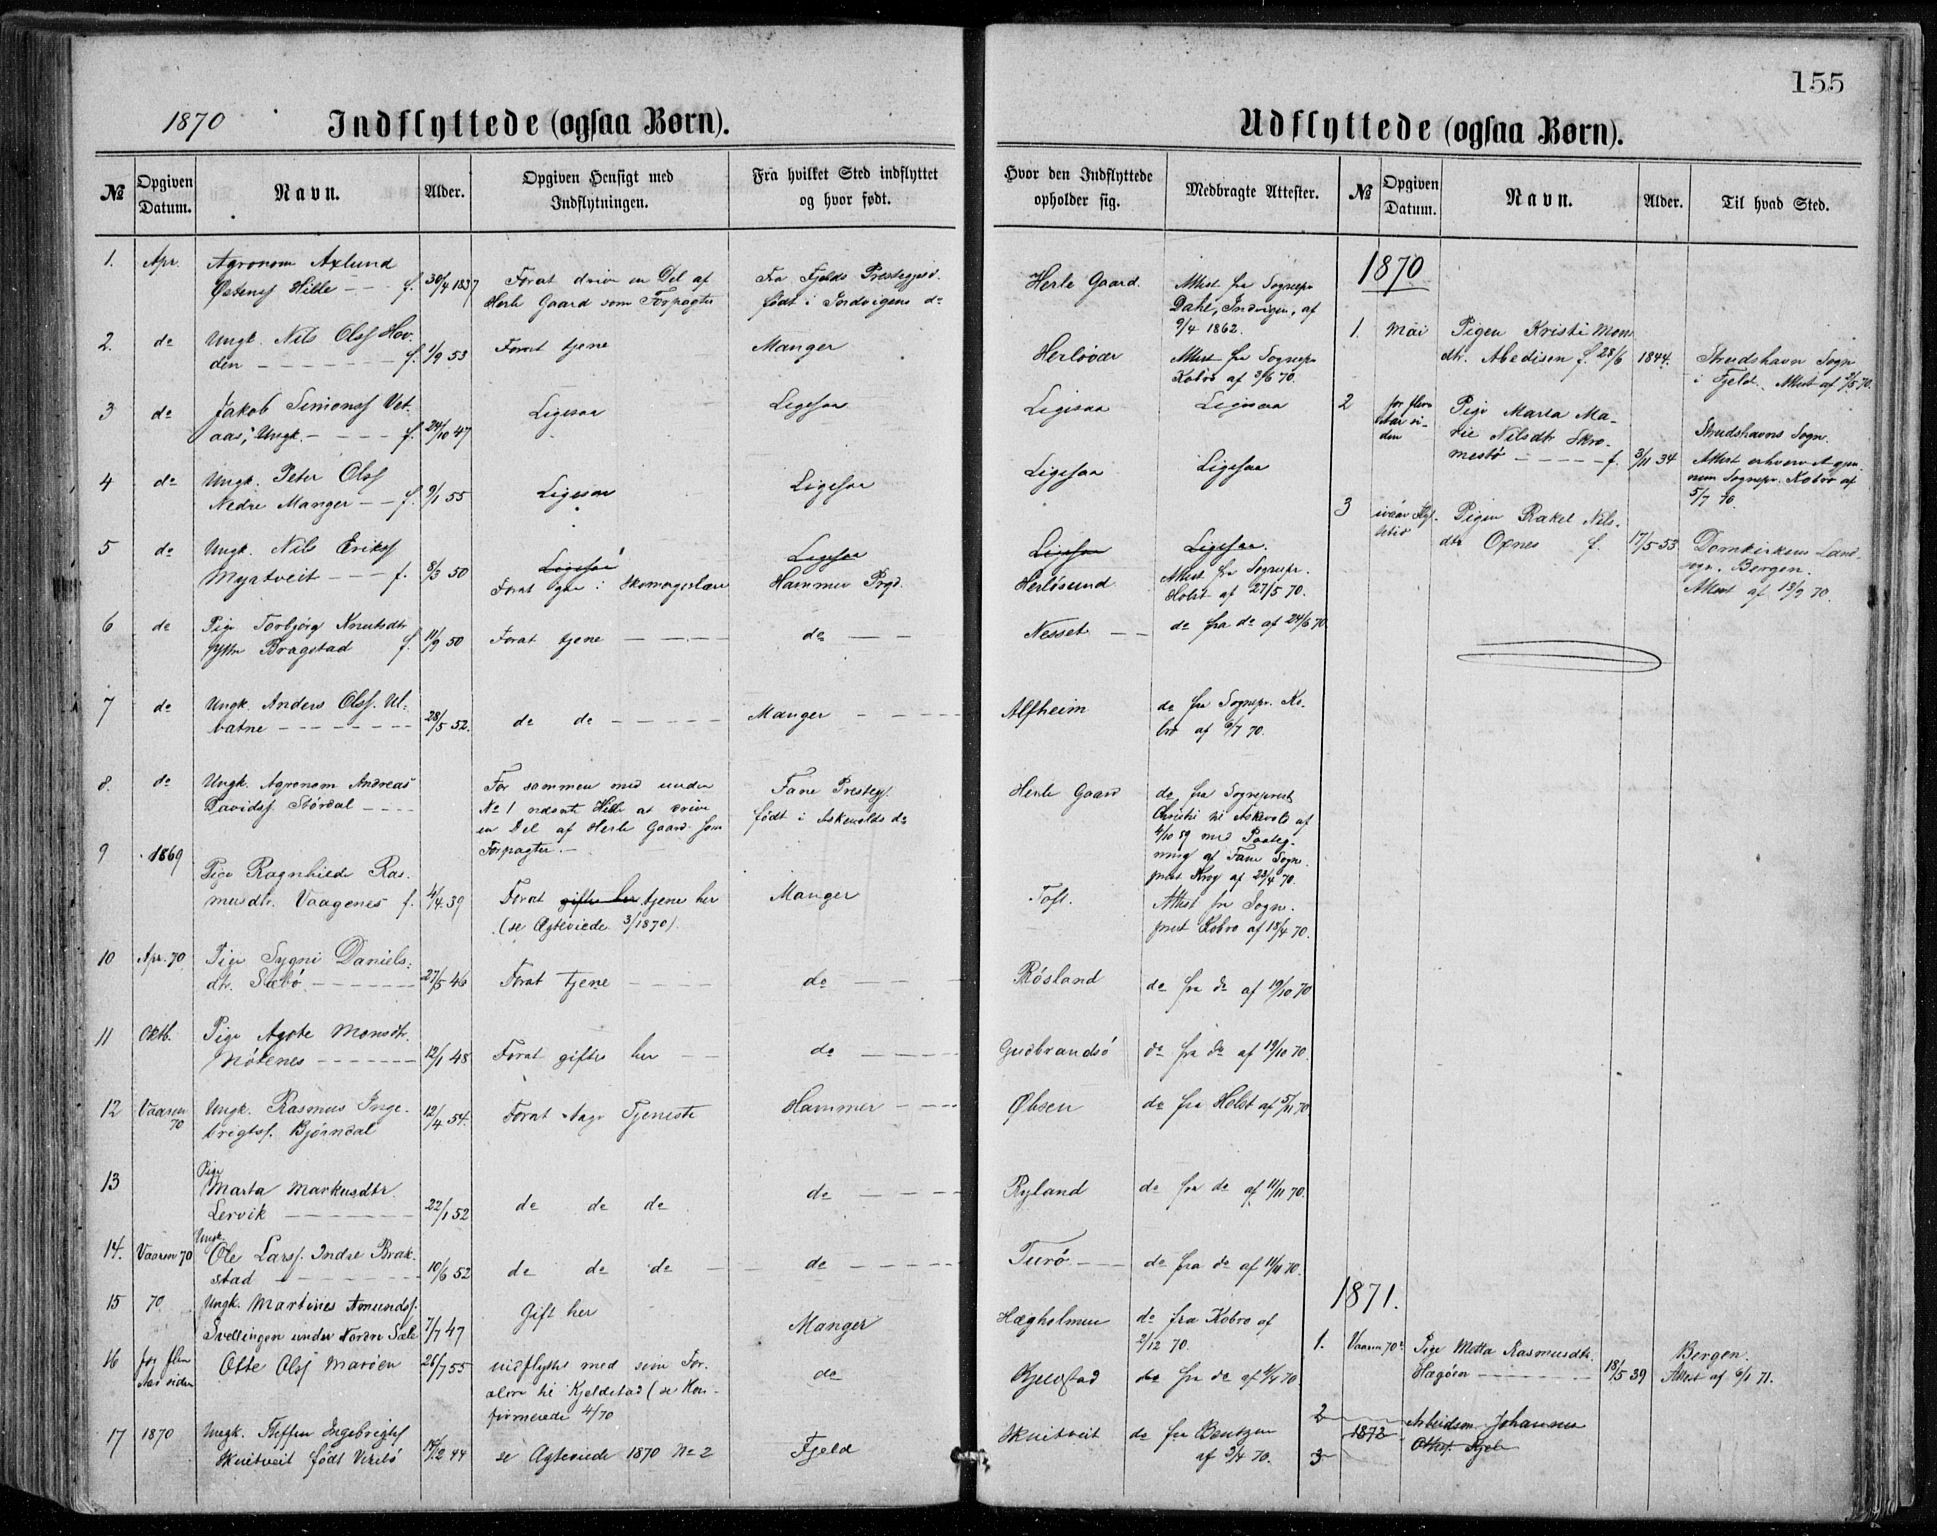 155
1870
Indflyttede (ogsaa Børn).
№
Opgiven Datum.
Navn.
Alder.
Opgiven Hensigt med Indflytningen.
Fra hvilket Sted indflyttet og hvor født.
Hvor den Indflyttede opholder sig.
Medbragte Attester.
1. Apr. Agronom Axlund
Hille f. 30/4 1837 Forat drive en Del af Herle Gaard som Forpagter
Fra Fjelds Prestegjed. født i Indvigens do
Herle Gaard. Attest fra Sognepr Dahl, Indvigen, af 9/4 1862.
2. do Ungk. Nils Olss Hov-
den f. 1/9 53 Forat tjene Manger Herløvær Attest fra Sognepr Kobro af 3/6 70.
3 do Jakob Simonss Vet-
aas, Ungk. f. 24/10 47 Ligesaa Ligesaa Ligesaa Ligesaa
4 do Ungk. Peter Olss
Nedre Manger f. 9/1 55 Ligesaa Ligesaa Ligesaa Ligesaa
5 do Ungk. Nils Erikss
Myrtveit f. 8/3 50 Ligesaa Ligesaa Ligesaa Ligesaa.
Forat gaa i Skomagerlære Hammer Prgd. Herløsund Attest fra Sognepr. Holst af 27/5 70.
6 do Pige Torbjørg Knutsdtr
Yttre Bragstad f. 11/9 50 Forat tjene do Nesset do fra do af 24/6 70.
7 do Ungk. Anders Olss. Ul-
vatne 28/5 52. do do Manger Alfheim do fra Sognepr. Ko-
bro af 9/7 70.
8. do Ungk. Agronom Andreas
Davidss. Stórdal For sammen med under
No 1 nævnte Hille at drive
en Del af Herle Gaard som
Forpagter
Fane Presteg.
født i Askevolds do
Herle Gaard do fra Sogneprest
Christi til Askvold af
4/10 59 med Paateg-
ning af Fane Sogne-
prest Krog af 23/4 70.
9 1869 Pige Ragnhilde Ras-
musdtr. Vaagenes f. 4/4 39 Forat gifte her tjene her
(se Ægteviede 3/1870).
Manger Toft. Attest fra Sogne-
prest Kobro af 18/4 70.
10 Apr. 70 Pige Sygni Daniels-
dtr. Sæbó 27/5 46 Forat tjene do Rósland do fra do af 19/10 70
11 Oktb. Pige Agote Monsdtr.
Nótenes 12/1 48 Forat giftes her do Gudbrandsó do fra do af 19/10 70.
12 Vaaren 70 Ungk. Rasmus Inge-
brigtss. Bjørndal 12/4 54. Forat tage Tjeneste Hammer Øbsen do fra Holst af 5/11 70
13 Pige
Marta Markusdtr.
Lervik 22/1 52 do do do do Ryland do fra do af 11/11 70.
14. Vaaren 70 Ungk.
Ole Larss. Indre Brak-
stad 10/6 52 do do do do Turó do fra do af 11/11 70.
15 70 Ungk. Martines Amundss.
Svellingen under Nordre Sæle 7/7 47 Gift her Manger Hægholmen do fra Kobro af
2/12 70.
16 for flere Aar siden Otte Olss Maróen 26/7 55 indflyttet med sine For-
ældre til Kjeldstad (se Kon-
firmerede 4/70
do Kjeldstad do fra do af 4/4 70.
17 1870 Ungk. Steffen Ingebrigtss
Skuitveit født Virló 14/2 44 se Ægteviede 1870 No 2 Fjeld Skuitveit do fra Bentzen
af 2/4 70.
Udflyttede (ogsaa Børn).
№
Opgiven Datum.
Navn.
Alder.
Til hvad Sted.
1870
1. Mai Pigen Kristi Mons-
dtr. Abedisen f. 28/6 1844. Strudshavn Sogn
i Fjeld. Attest af 3/5 70.
2 for flere Aar si-
den Pige Marta Ma-
rie Nilsdtr Skro-
mestó f. 3/11 34 Strudshavns Sogn.
Attest erhvervet gjen-
nem Sognepr. Kobro af
5/7 70.
3 ivaar Pigen Rakel Nils-
dtr Oxnes f. 17/5 53 Domkirkens Land-
sogn, Bergen.
Attest af 13/9 70.
1871.
1. Vaaren 70 Pige Metta Rasmusdtr.
Hægóen 18/5 39 Bergen.
Attest af 6/1 71.
2 1872 Arbeidsm. Johannes
3